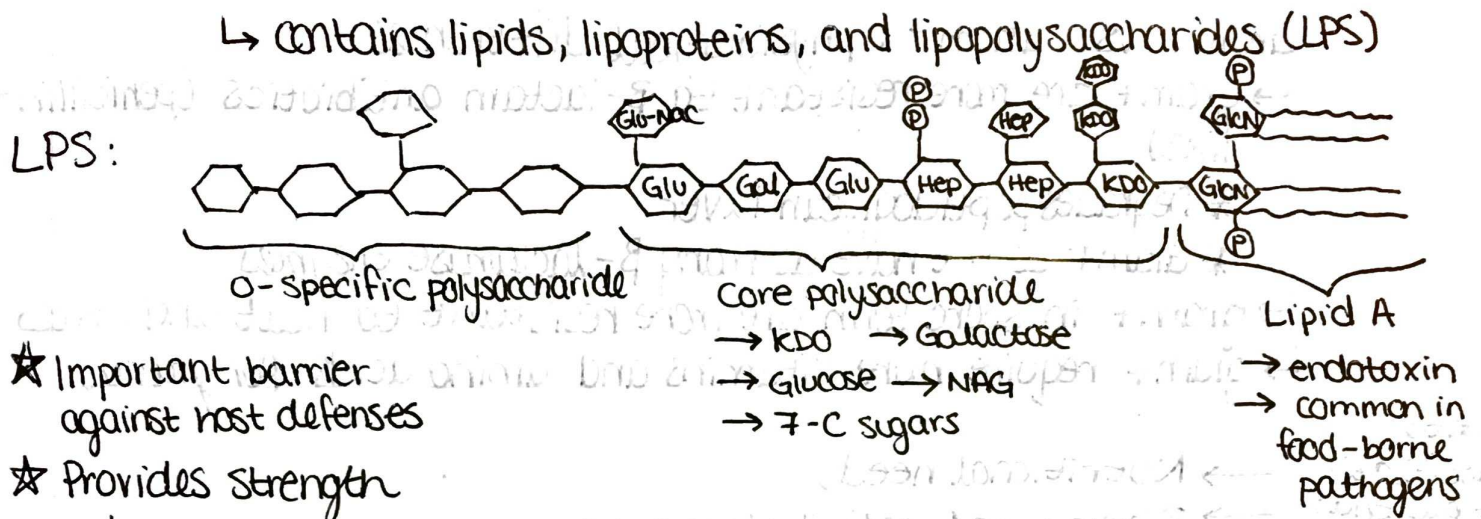 ↳ contains lipids, lipoproteins, and lipopolysaccharides (LPS)
LPS:
Glu-Nac
P
P
Hep
KDO
KDO
P
GlcN
Glu
Gal
Glu
Hep
Hep
KDO
GlcN
P
O-specific polysaccharide
Core polysaccharide
→ KDO → Galactose
→ Glucose → NAG
→ 7-C sugars
Lipid A
→ endotoxin
→ common in
food-borne
pathogens
☆ Important barrier
against host defenses
☆ Provides strength